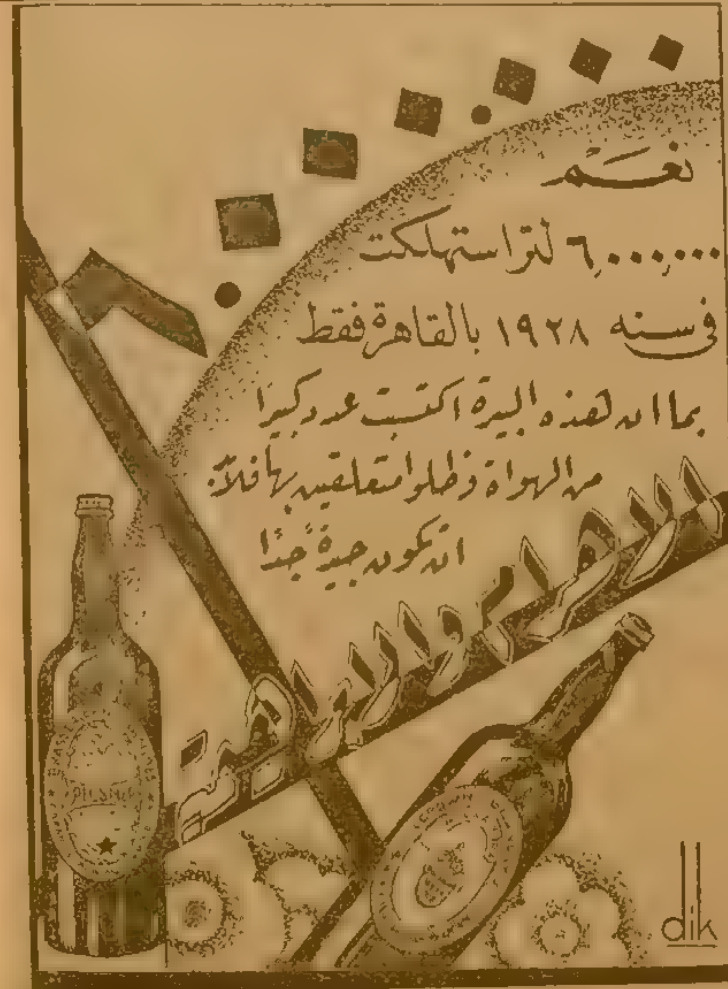 نعم
٦,٠٠٠,٠٠٠ لترا استهلكت
فى سنه ١٩٢٨ بالقاهرة فقط
بما ان هذه البيرة اكتسبت عدد كبيرا
من الهواة وظلوا متعلقين بها فلابد
ان تكون جيدة جدًا
الاهرام
PILSNER
CROWN
dik